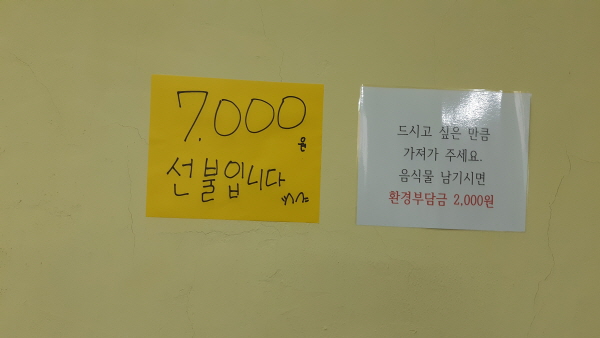 7,000원
선불입니다
드시고 싶은 만큼
가져가 주세요.
음식물 남기시면
환경부담금 2,000원